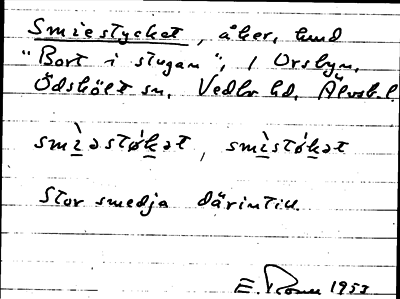 Smiestycket, åker, hund
"Bort i stugan", i Orsbyn,
Ödskölt sn, Vedbo hd, Älvsb.l.
smìəstøkət, smìstøkət
Stor smedja därintill.
E. 1953